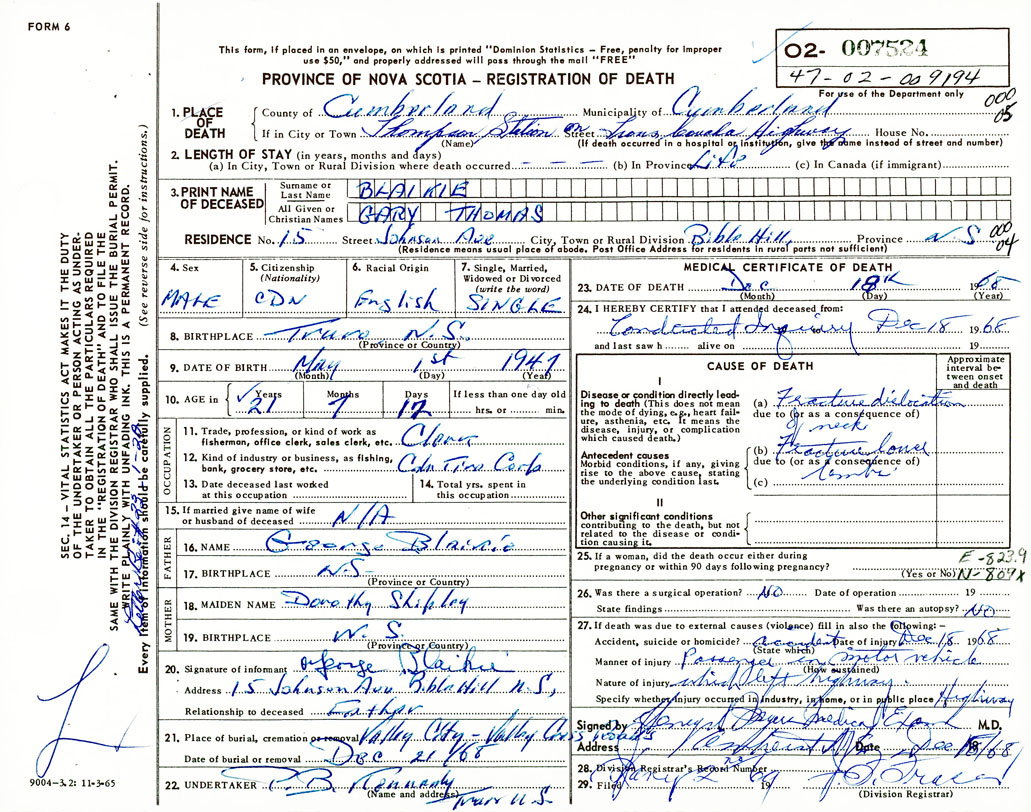 FORM 6
This form, if placed in an envelope, on which is printed "Dominion Statistics – Free, penalty for improper
use $50," and properly addressed will pass through the mail "FREE"
PROVINCE OF NOVA SCOTIA – REGISTRATION OF DEATH
O2- 007524
47-02-009194
For use of the Department only
000
05
1. PLACE OF DEATH
County of Cumberland Municipality of Cumberland
If in City or Town Thompson Station on Street Trans Canada Highway House No.
(Name) (If death occurred in a hospital or institution, give the name instead of street and number)
2. LENGTH OF STAY (in years, months and days)
(a) In City, Town or Rural Division where death occurred – – – (b) In Province Life (c) In Canada (if immigrant)
3. PRINT NAME OF DECEASED
Surname or Last Name BLAIKIE
All Given or Christian Names GARY THOMAS
RESIDENCE No. 15 Street Johnson Ave City, Town or Rural Division Bible Hill, Province N S
000
04
(Residence means usual place of abode. Post Office Address for residents in rural parts not sufficient)
4. Sex MALE
5. Citizenship (Nationality) CDN
6. Racial Origin English
7. Single, Married, Widowed or Divorced (write the word) SINGLE
8. BIRTHPLACE Truro N.S.
(Province or Country)
9. DATE OF BIRTH May 1st 1947
(Month) (Day) (Year)
10. AGE in Years 21 Months 7 Days 17 If less than one day old hrs. or min.
OCCUPATION
11. Trade, profession, or kind of work as fisherman, office clerk, sales clerk, etc.
12. Kind of industry or business, as fishing, bank, grocery store, etc. Cdn Tire Corp
13. Date deceased last worked at this occupation
14. Total yrs. spent in this occupation
15. If married give name of wife or husband of deceased N/A
FATHER
16. NAME George Blaikie
17. BIRTHPLACE N.S.
(Province or Country)
MOTHER
18. MAIDEN NAME Dorothy Shipley
19. BIRTHPLACE N. S.
(Province or Country)
20. Signature of informant George Blaikie
Address 15 Johnson Ave Bible Hill N.S,
Relationship to deceased Father
21. Place of burial, cremation or removal Valley Cty – Valley Cross roads
Date of burial or removal DEC 21/68
22. UNDERTAKER P.B. Kennedy
(Name and address) Truro N.S.
MEDICAL CERTIFICATE OF DEATH
23. DATE OF DEATH Dec 18th 1968
(Month) (Day) (Year)
24. I HEREBY CERTIFY that I attended deceased from:
Conducted Inquiry Dec 18 1968
and last saw h alive on 19
CAUSE OF DEATH
Approximate interval between onset and death
I
Disease or condition directly leading to death (This does not mean the mode of dying, e.g., heart failure, asthenia, etc. It means the disease, injury, or complication which caused death.)
(a) Fracture dislocation
due to (or as a consequence of)
of neck
Antecedent causes
Morbid conditions, if any, giving rise to the above cause, stating the underlying condition last.
(b) Fracture lower
due to (or as a consequence of)
limbs
(c)
II
Other significant conditions contributing to the death, but not related to the disease or condition causing it.
25. If a woman, did the death occur either during pregnancy or within 90 days following pregnancy?
(Yes or No)
E-823.9
N-809x
26. Was there a surgical operation? NO Date of operation 19
State findings Was there an autopsy? NO
27. If death was due to external causes (violence) fill in also the following:–
Accident, suicide or homicide? accident Date of injury Dec 18 1968
(State which)
Manner of injury Passenger in motor vehicle
(How sustained)
Nature of injury which left highway.
Specify whether injury occurred in industry, in home, or in public place Highway
Signed by Medical Exam M.D.
Address Amherst N.S Date Dec 18/68
28. Division Registrar's Record Number
29. Filed 19
(Division Registrar)
SEC. 14 – VITAL STATISTICS ACT MAKES IT THE DUTY
OF THE UNDERTAKER OR PERSON ACTING AS UNDER-
TAKER TO OBTAIN ALL THE PARTICULARS REQUIRED
IN THE "REGISTRATION OF DEATH" AND TO FILE THE
SAME WITH THE DIVISION REGISTRAR WHO SHALL ISSUE THE BURIAL PERMIT.
WRITE PLAINLY WITH UNFADING INK. THIS IS A PERMANENT RECORD.
Every item of information should be carefully supplied. (See reverse side for instructions.)
9004-3.2: 11-3-65